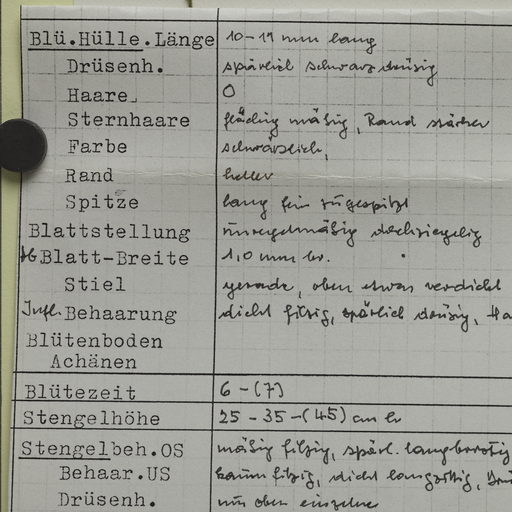 Blü.Hülle.Länge 10-11 mm lang
Drüsenh. spärlich schwarzdrüsig
Haare 0
Sternhaare flächig mäßig, Rand stärker
Farbe schwärzlich,
Rand heller
Spitze lang fein zugespitzt
Blattstellung unregelmäßig dachziegelig
Blatt-Breite 1,0 mm br.
Stiel gerade, oben etwas verdickt
Infl. Behaarung dicht filzig, spärlich drüsig, Ha
Blütenboden
Achänen
Blütezeit 6 - (7)
Stengelhöhe 25 - 35 - (45) cm h
Stengelbeh.OS mäßig filzig, spärl. langborstig
Behaar.US kaum filzig, dicht langzottig,
Drüsenh. nur oben einzelne